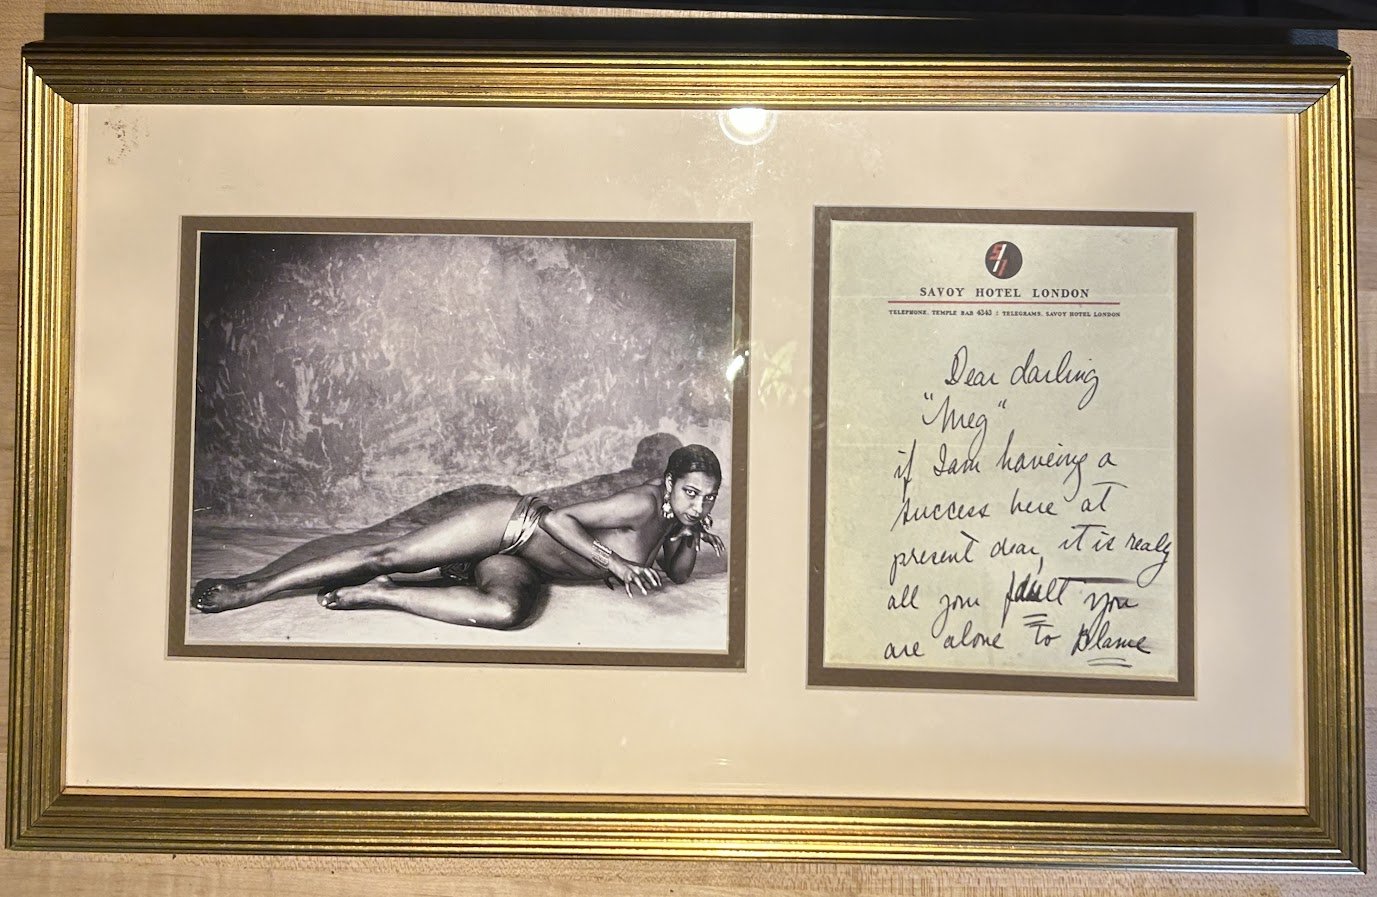 SAVOY HOTEL LONDON
TELEPHONE. TEMPLE BAR 4343 : TELEGRAMS. SAVOY HOTEL LONDON
Dear darling
"Meg"
if I am haveing a
success here at
present dear, it is realy
all your fault you
are alone to Blame